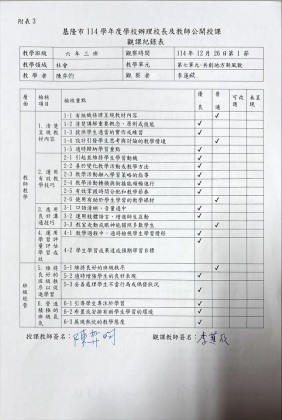 附表 3
基隆市 114 學年度學校辦理校長及教師公開授課
觀課紀錄表
教學班級 六年三班 觀察時間 114 年 12 月 26 日第 1 節
教學領域 社會 教學單元
教學者 觀察者
層面 檢核項目 檢核重點 優良 普通 可改進 未呈現
教師教學
1. 清楚呈現教材內容
1-1 有組織條理呈現教材內容 ✓
1-2 清楚講解重要概念、原則或技能 ✓
1-3 提供學生適當的實作或練習 ✓
1-4 設計引發學生思考與討論的教學情境 ✓
1-5 適時歸納學習重點 ✓
2. 運用有效教學技巧
2-1 引起並維持學生學習動機 ✓
2-2 善於變化教學活動或教學方法 ✓
2-3 教學活動融入學習策略的指導 ✓
2-4 教學活動轉換與銜接能順暢進行 ✓
2-5 有效掌握時間分配和教學節奏 ✓
2-6 使用有助於學生學習的教學媒材 ✓
3. 應用良好溝通技巧
3-1 口語清晰、音量適中 ✓
3-2 運用肢體語言，增進師生互動 ✓
3-3 教室走動或眼神能關照多數學生 ✓
4. 運用學習評量評估學習成效
4-1 教學過程中，適時檢視學生學習情形 ✓
4-2 學生學習成果達成預期學習目標 ✓
班級經營
5-1 維持良好的班級秩序 ✓
5-2 適時增強學生的良好表現 ✓
5-3 妥善處理學生不當行為或偶發狀況 ✓
6. 營造積極的班級氣氛
6-1 引導學生專注於學習 ✓
6-2 布置或安排有助學生學習的環境 ✓
6-3 展現熱忱的教學態度 ✓
授課教師簽名： 觀課教師簽名：